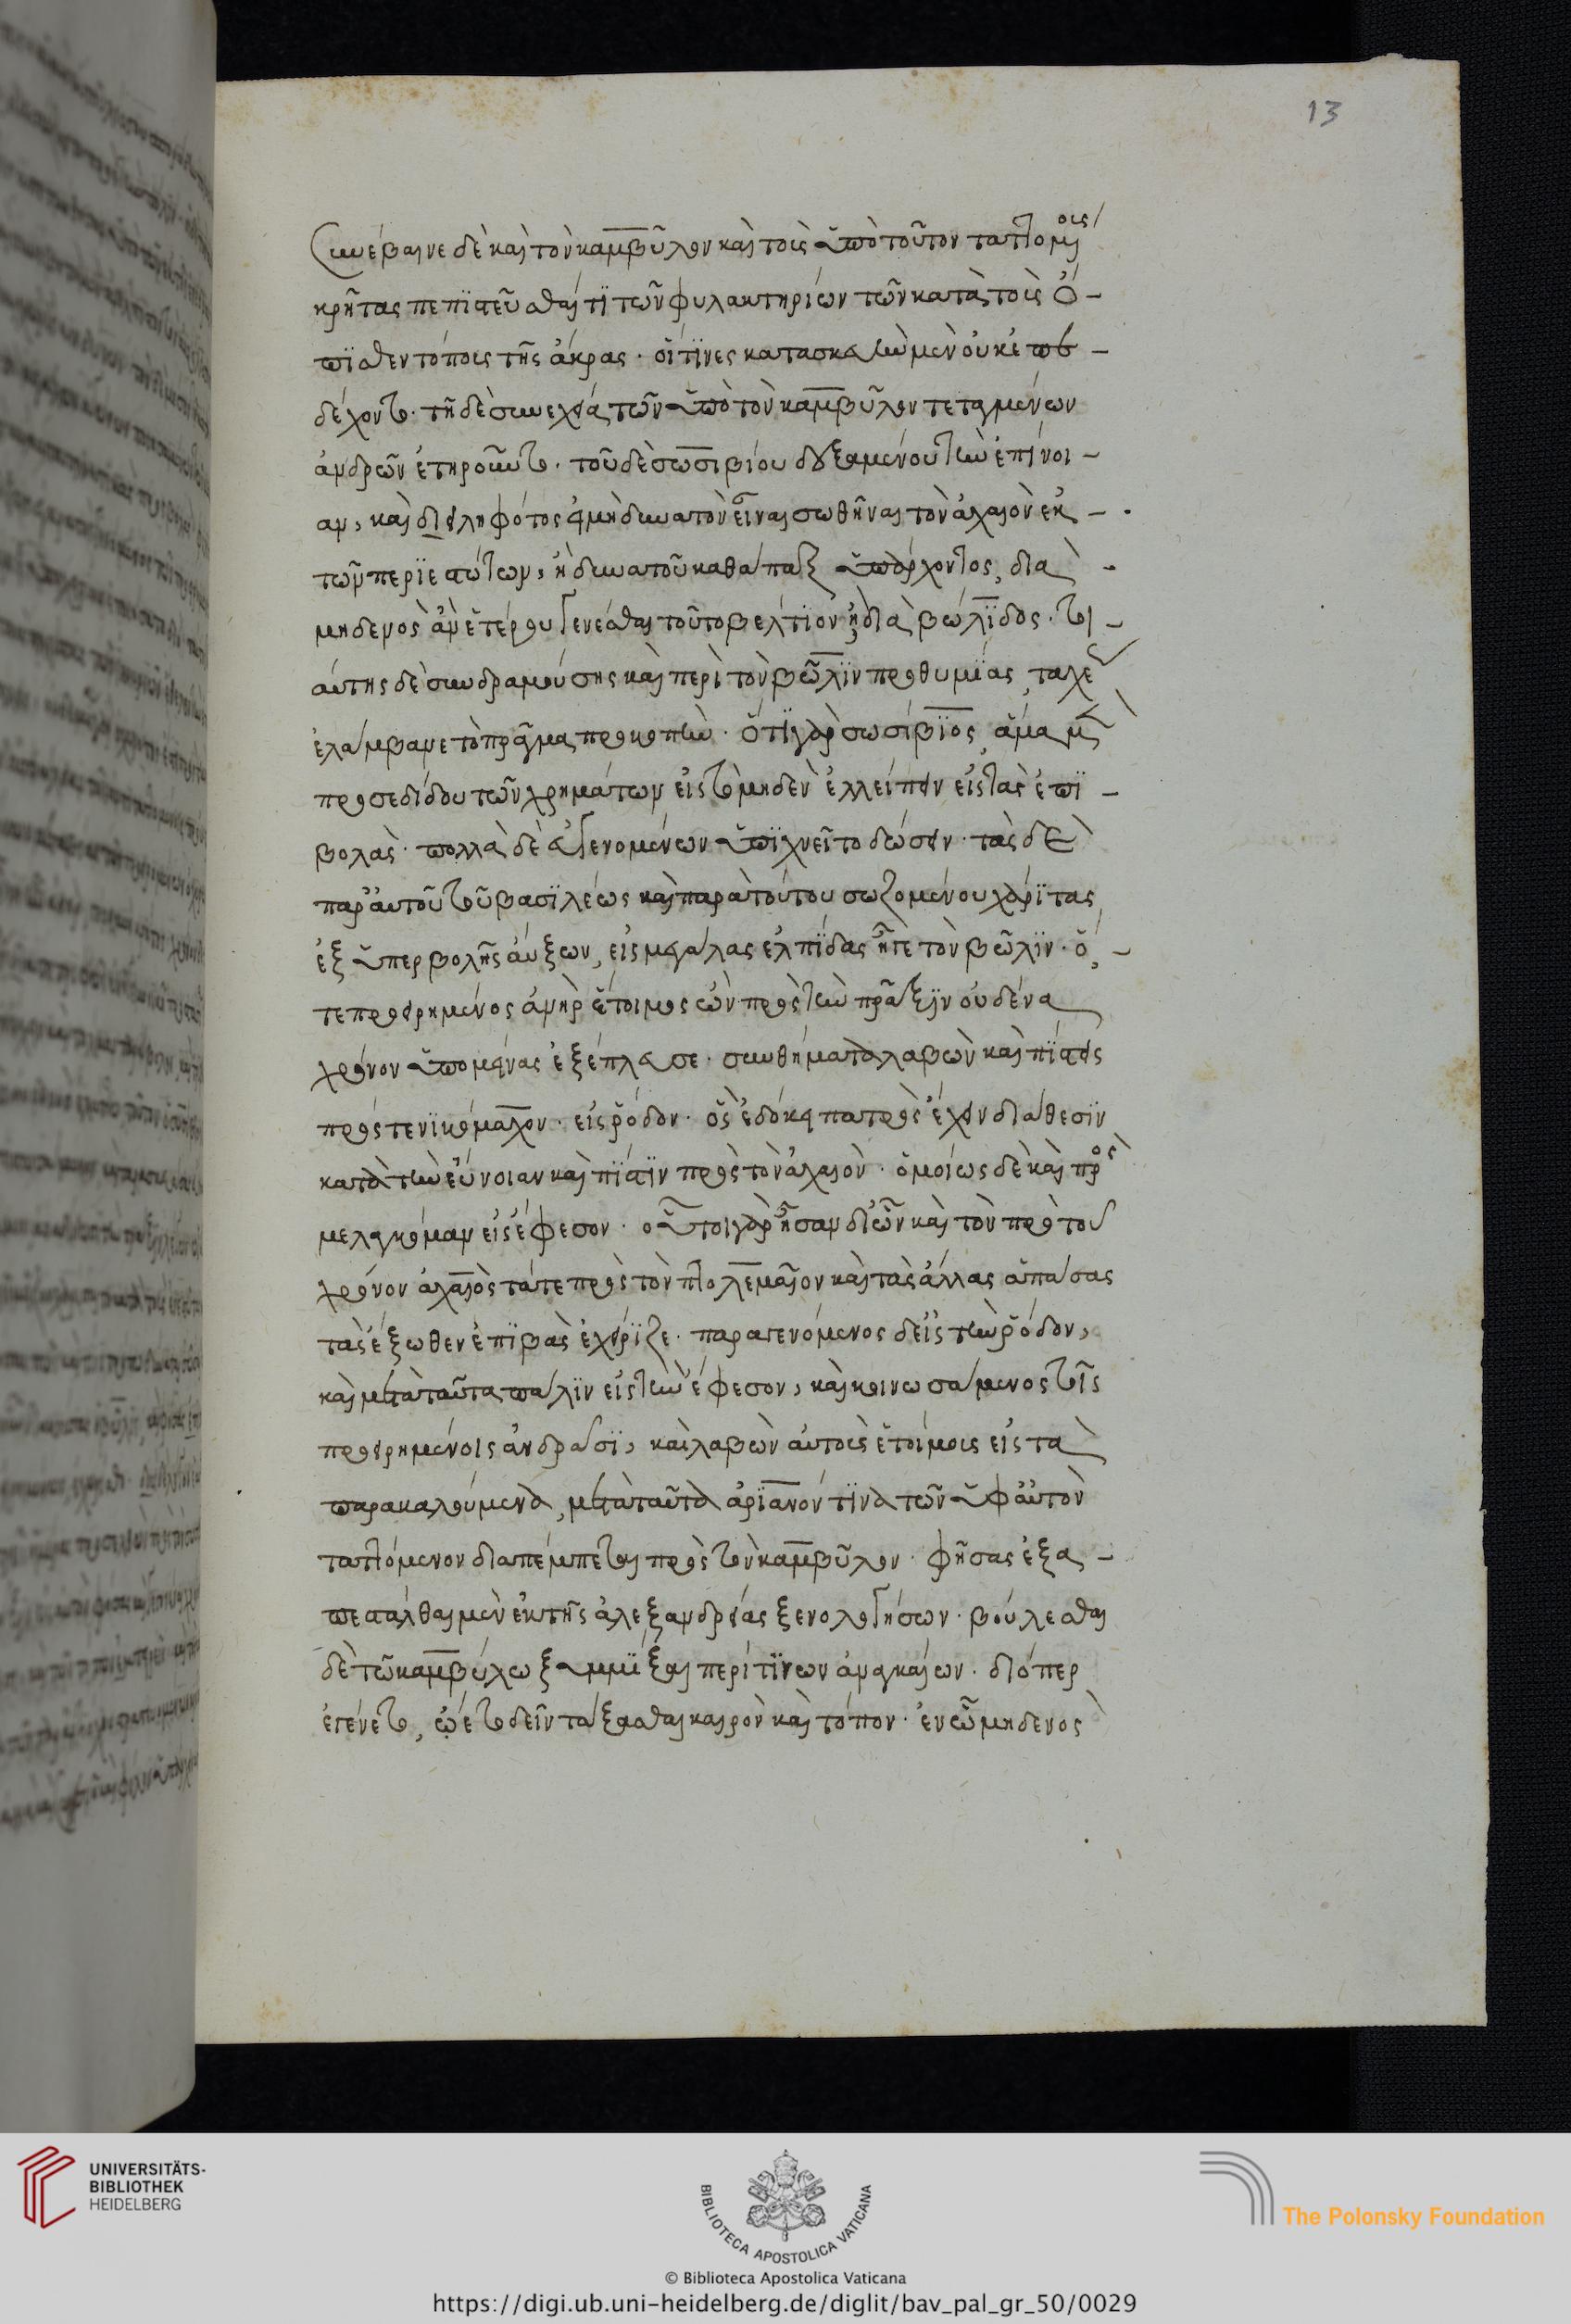 13
Συνέβαινε δὲ καὶ τὸν καμβῦλον καὶ τοὺς ὑπὸ τοῦτον ταττομένους
κρῆτας πεπιστεῦσθαί τι τῶν φυλακτηρίων τῶν κατὰ τοὺς ὄ-
πισθεν τόπους τῆς ἄκρας. οἵτινες κατασκευὴν μὲν οὐκ ἐπε-
δέχοντο. τῇ δὲ συνεχείᾳ τῶν ὑπὸ τὸν καμβῦλον τεταγμένων
ἀνδρῶν ἐτηροῦντο. τοῦ δὲ σωσιβίου δεξαμένου τὴν ἐπίνοι-
αν, καὶ διειληφότος ἢ μὴ δυνατὸν εἶναι σωθῆναι τὸν ἀχαιὸν ἐκ
τῶν περιεστώτων, ἢ δυνατοῦ καθάπαξ ὑπάρχοντος, διὰ
μηδενὸς ἂν ἑτέρου γενέσθαι τοῦτο βέλτιον ἢ διὰ βώλιδος. τοι-
αύτης δὲ συνδραμούσης καὶ περὶ τὸν βῶλιν προθυμίας, ταχέως
ἐλάμβανε τὸ πρᾶγμα προκοπήν. ὅ τε γὰρ σωσίβιος ἅμα μὲν
προσεδίδου τῶν χρημάτων εἰς τὸ μηδὲν ἐλλείπειν εἰς τὰς ἐπι-
βολάς. πολλὰ δὲ εὖ γενομένων ὑπισχνεῖτο δώσειν. τὰς δὲ
παρ' αὐτοῦ τοῦ βασιλέως καὶ παρὰ τούτου σωζομένου χάριτας
ἐξ ὑπερβολῆς αὔξων, εἰς μεγάλας ἐλπίδας ἦγε τὸν βῶλιν. ὅ
τε προειρημένος ἀνὴρ ἕτοιμος ὢν πρὸς τὴν πρᾶξιν οὐδένα
χρόνον ὑπομείνας ἐξέπλευσε. συνθήματα λαβὼν καὶ πίστεις
πρός τε νικόμαχον. εἰς ῥόδον. ὃς ἐδόκει πατρὸς ἔχειν διάθεσιν
κατὰ τὴν εὔνοιαν καὶ πίστιν πρὸς τὸν ἀχαιόν. ὁμοίως δὲ καὶ πρὸς
μελαγκόμαν εἰς ἔφεσον. οὗτοι γὰρ ἦσαν δι' ὧν καὶ τὸν πρὸ τοῦ
χρόνον ἀχαιὸς τά τε πρὸς τὸν πτολεμαῖον καὶ τὰς ἄλλας ἁπάσας
τὰς ἔξωθεν ἐπιβὰς ἐχείριζε. παραγενόμενος δ' εἰς τὴν ῥόδον,
καὶ μετὰ ταῦτα πάλιν εἰς τὴν ἔφεσον, καὶ κοινωσάμενος τοῖς
προειρημένοις ἀνδράσι, καὶ λαβὼν αὐτοὺς ἑτοίμους εἰς τὰ
παρακαλούμενα, μετὰ ταῦτα ἀριανόν τινα τῶν ὑφ' αὑτὸν
ταττόμενον διαπέμπεται πρὸς τὸν καμβῦλον. φήσας ἐξα-
πεστάλθαι μὲν ἐκ τῆς ἀλεξανδρείας ξενολογήσων. βούλεσθαι
δὲ τῶ καμβύλω ξυμμίξαι περί τινων ἀναγκαίων. διόπερ
ἐγένετο, ᾤετο δεῖν τάξασθαι καιρὸν καὶ τόπον. ἐν ᾧ μηδενὸς
UNIVERSITÄTS-
BIBLIOTHEK
HEIDELBERG
BIBLIOTECA APOSTOLICA VATICANA
The Polonsky Foundation
© Biblioteca Apostolica Vaticana
https://digi.ub.uni-heidelberg.de/diglit/bav_pal_gr_50/0029